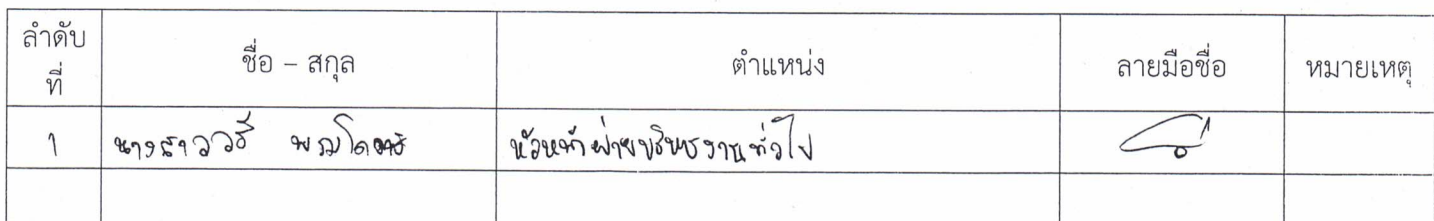 ลำดับที่ ชื่อ – สกุล ตำแหน่ง ลายมือชื่อ หมายเหตุ
1 นางสาว หัวหน้าฝ่ายบริหารงานทั่วไป